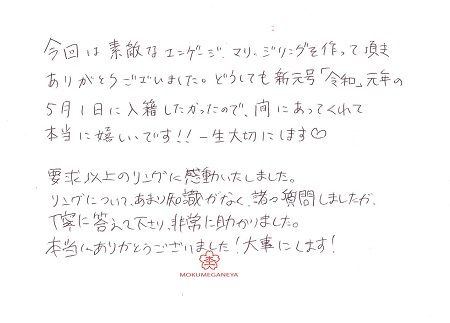 今回は素敵なエンゲージ、マリッジリングを作って頂き
ありがとうございました。どうしても新元号「令和」元年の
5月1日に入籍したかったので、間にあってくれて
本当に嬉しいです!!一生大切にします♡
要求以上のリングに感動いたしました。
リングについて、あまり知識がなく、諸々質問しましたが、
丁寧に答えて下さり、非常に助かりました。
本当にありがとうございました!大事にします!
MOKUMEGANEYA